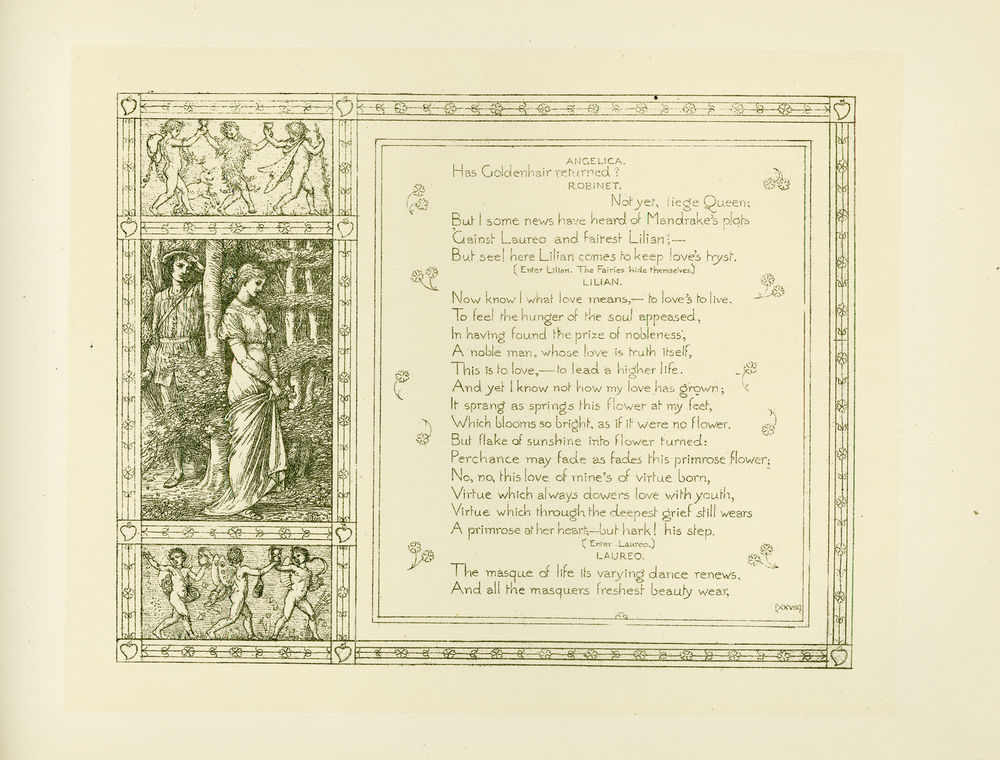 ANGELICA.
Has Goldenhair returned?
ROBINET.
Not yet, liege Queen;
But I some news have heard of Mandrake's plots
Gainst Laureo and fairest Lilian;—
But see! here Lilian comes to keep love's tryst.
(Enter Lilian. The Fairies hide themselves.)
LILIAN.
Now know I what love means,— to love's to live.
To feel the hunger of the soul appeased,
In having found the prize of nobleness;
A noble man, whose love is truth itself,
This is to love,— to lead a higher life.
And yet I know not how my love has grown;
It sprang as springs this flower at my feet,
Which blooms so bright, as if it were no flower.
But flake of sunshine into flower turned:
Perchance may fade as fades this primrose flower;
No, no, this love of mine's of virtue born,
Virtue which always dowers love with youth,
Virtue which through the deepest grief still wears
A primrose at her heart;—but hark! his step.
(Enter Laureo.)
LAUREO.
The masque of life its varying dance renews,
And all the masquers freshest beauty wear,
[XXVIII]